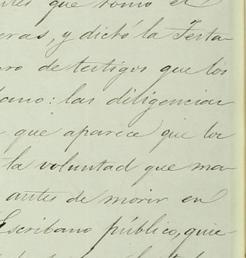 que tomó el
eras, y dictó la Testa-
ro de testigos que los
bano: las diligencias
que aparece que los
la voluntad que ma-
antes de morir en
Escribano público, quie-